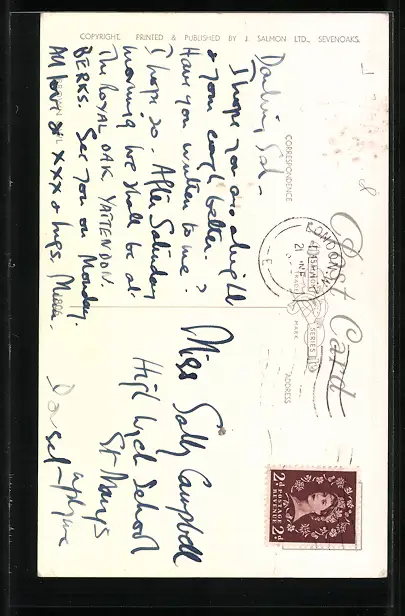 COPYRIGHT. PRINTED & PUBLISHED BY J. SALMON LTD., SEVENOAKS.
Post Card
CORRESPONDENCE
ADDRESS
TRADE
MARK
SERIES
LONDON
21
E
2d POSTAGE REVENUE 2d
Darling Sal –
I hope you are alright
& your cough better.
Have you written to me?
I hope so. After Saturday
morning we shall be at
The ROYAL OAK YATTENDON.
BERKS. See you on Monday.
All love & xxx & hugs.
Miss Sally Campbell
School
St Marys